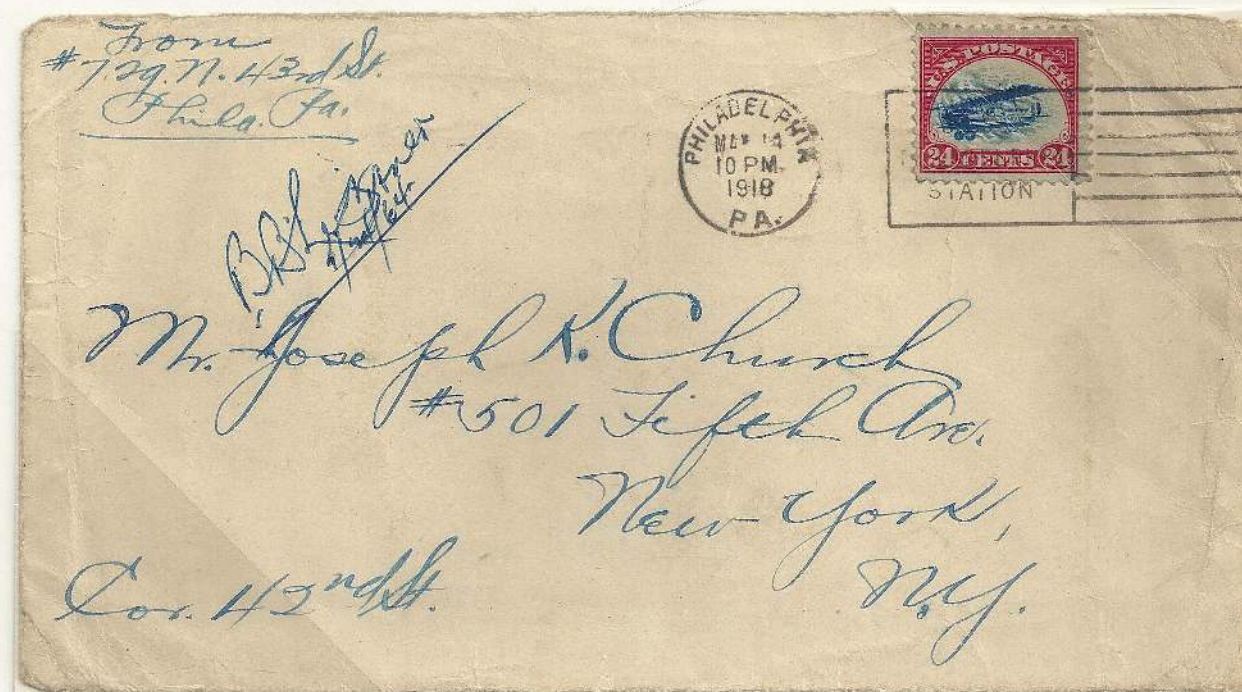 From
# 729. N. 43rd St.
Phila. Pa.
PHILADELPHIA
MAY 14
10 PM
1918
PA.
U.S. POSTAGE
24 CENTS 24
STATION
Mr. Joseph K. Church
#501 Fifth Ave.
New York,
N.Y.
Cor. 42nd St.